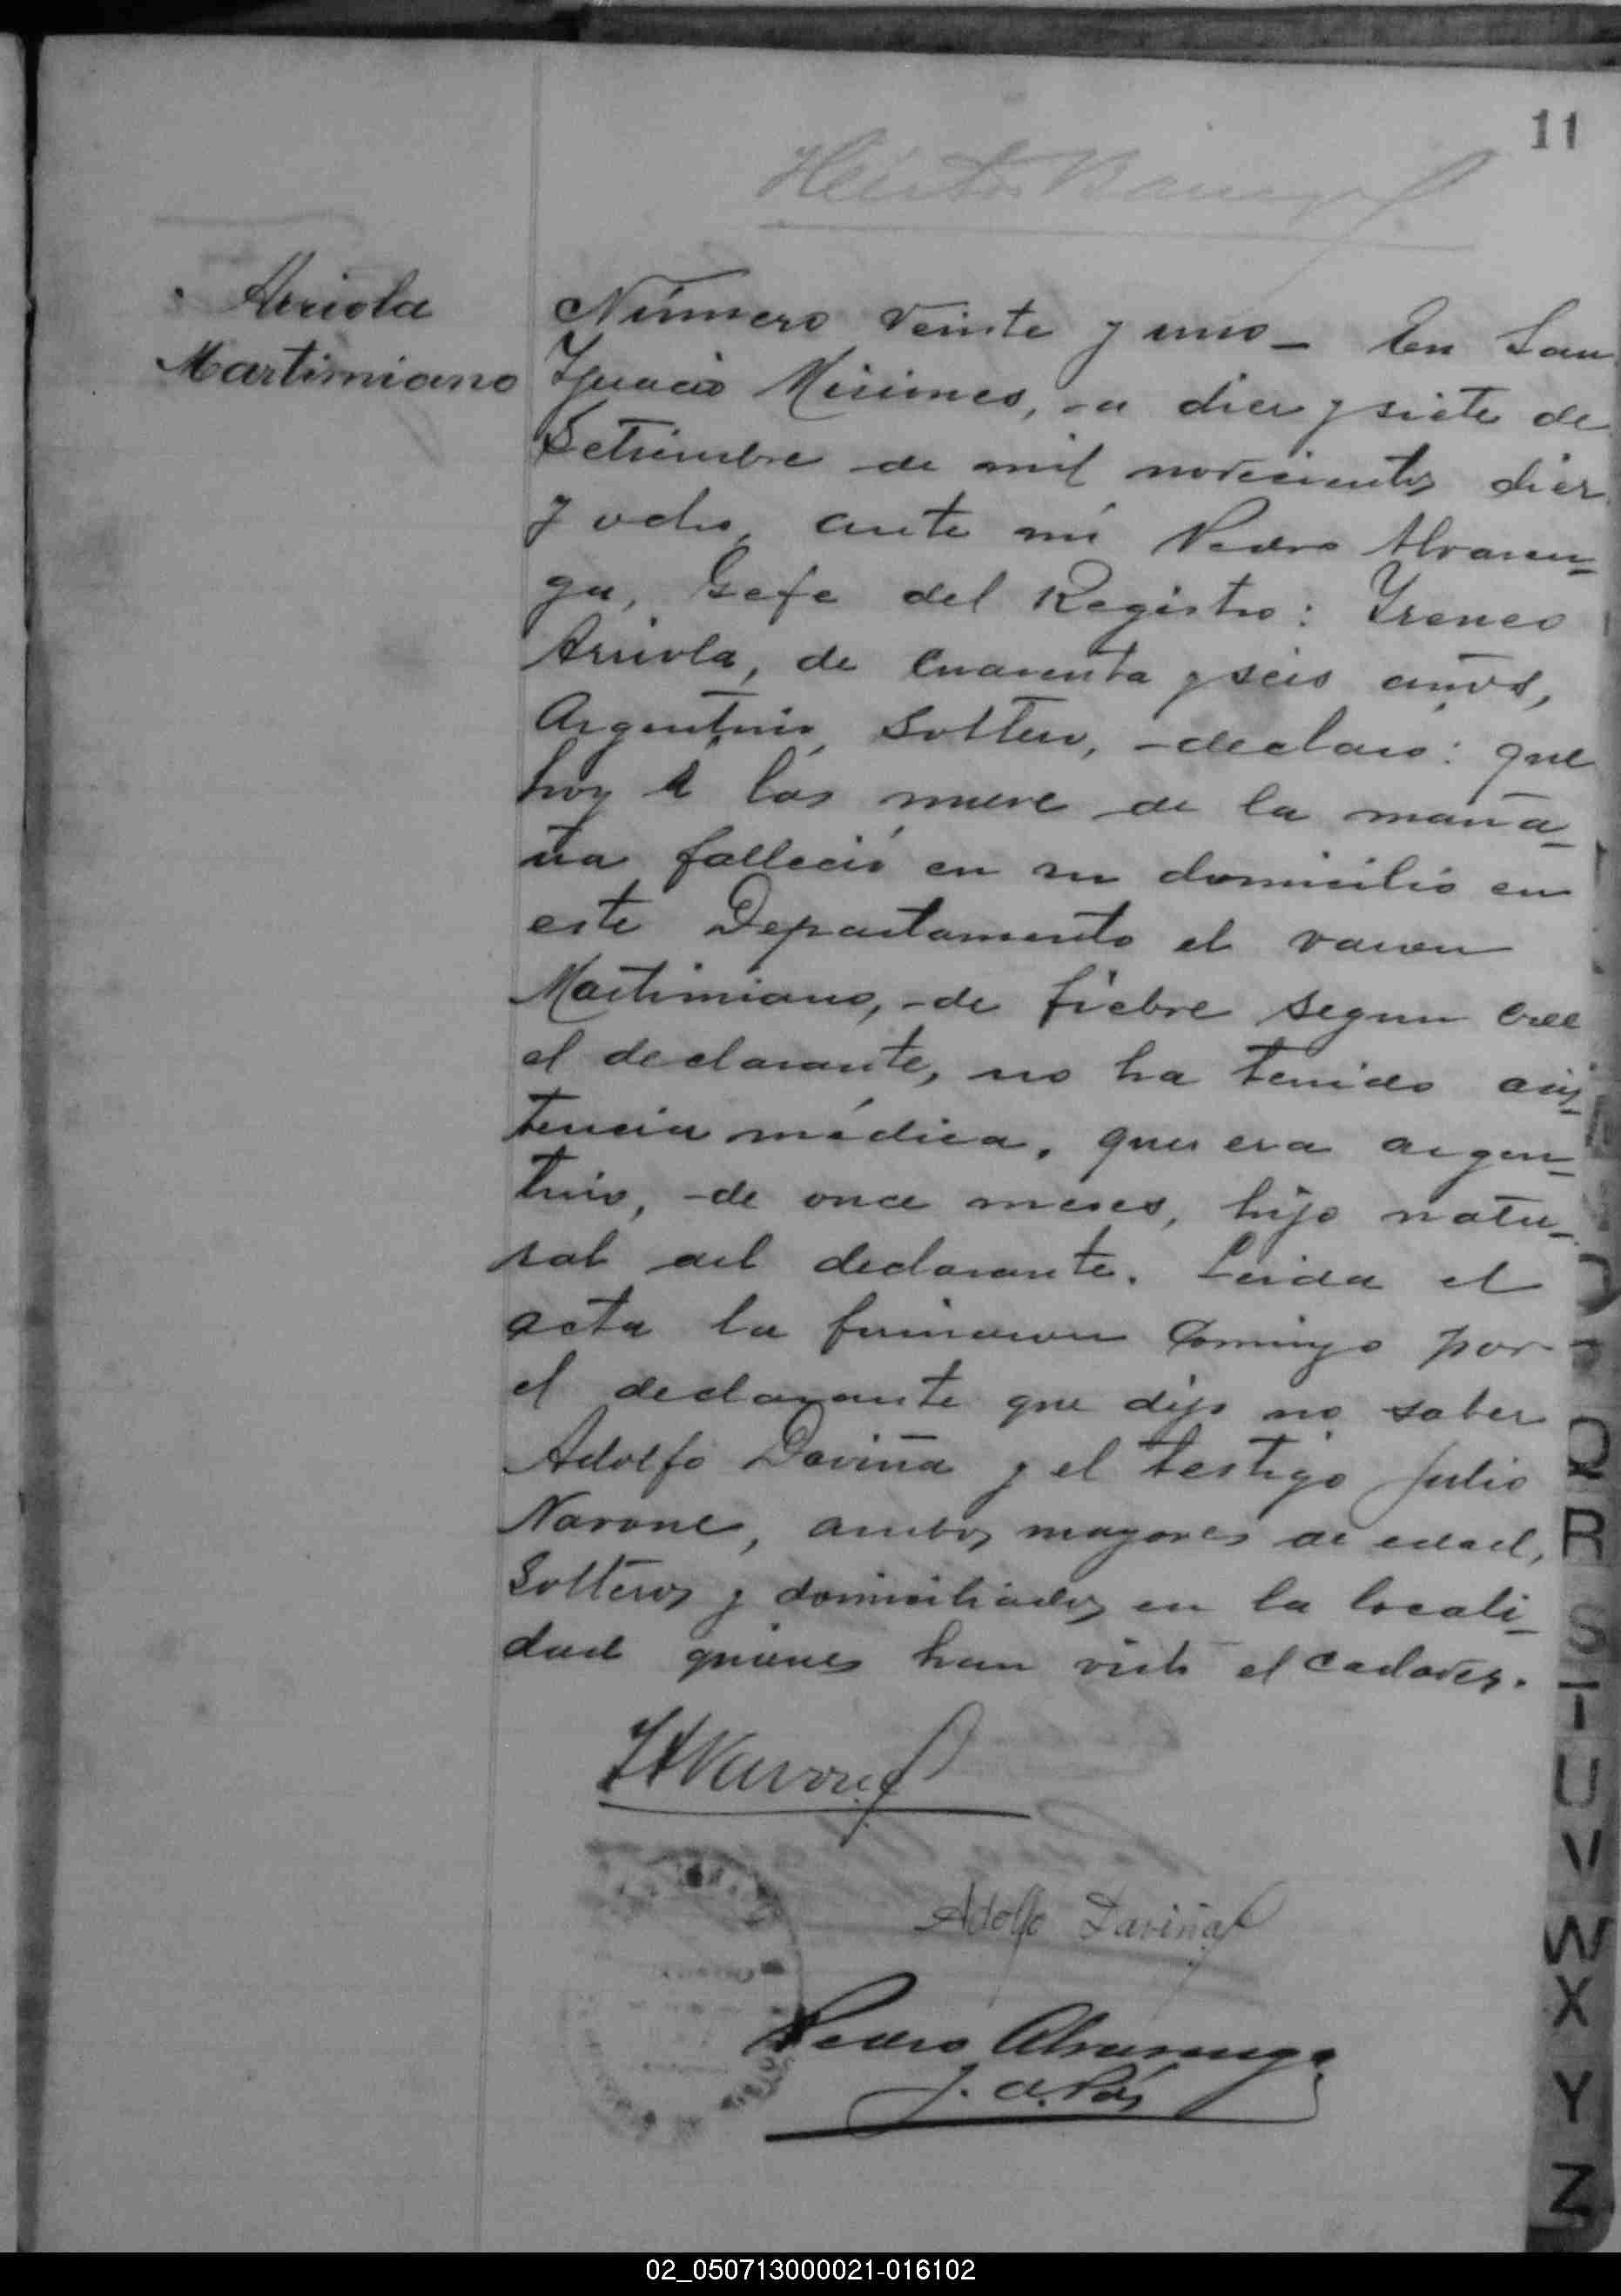 11
Arriola
Martimiano
Número veinte y uno - En San
Ygnacio Misiones, -a diez y siete de
Setiembre de mil novecientos diez
y ocho, ante mi Pedro Alvaren-
ga, Gefe del Registro: Yreneo
Arriola, de cuarenta y seis años,
Argentino, soltero, -declaró: que
hoy á las nueve de la maña-
na falleció en su domicilio en
este Departamento el varon
Martimiano, -de fiebre segun cree
el declarante, no ha tenido asis-
tencia médica, que era argen-
tino, -de once meses, hijo natu-
ral del declarante. Leida el
acta la firmaron conmigo por
el declarante que dijo no saber
Adolfo Daviña y el testigo Julio
Navone, ambos mayores de edad,
solteros y domiciliados en la locali-
dad quienes han visto el cadaver.
Adolfo Daviña
Pedro Alvarenga
J. de Paz
Q
R
S
T
U
V
W
X
Y
Z
02_050713000021-016102